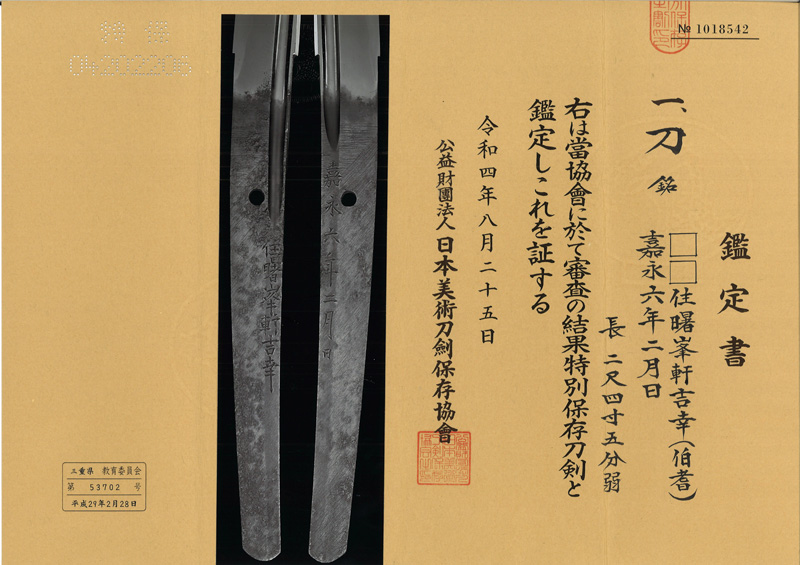 № 1018542
鑑定書
一、刀 銘
□□住曙峯軒吉幸(伯耆)
嘉永六年二月日
長 二尺四寸五分弱
右は當協會に於て審査の結果特別保存刀剣と
鑑定しこれを証する
令和四年八月二十五日
公益財團法人 日本美術刀劍保存協會
嘉永六年二月日
住曙峯軒吉幸
04202206
三重県 教育委員会
第 53702 号
平成29年2月28日